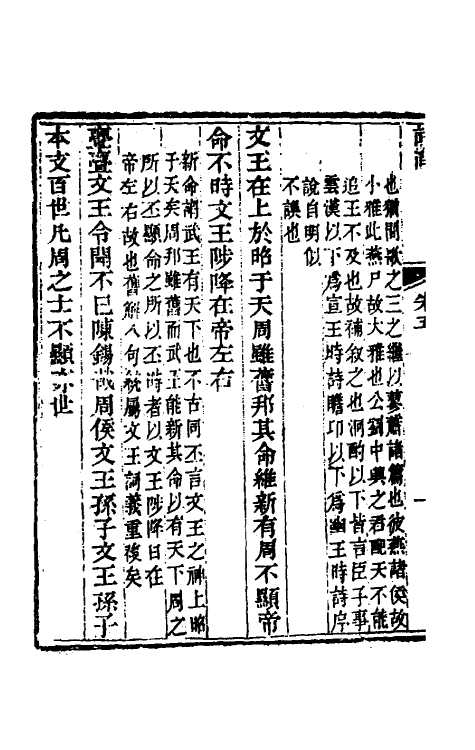 也猶閒歌之三之繼以蓼蕭諸篇也彼燕諸侯故
小雅此燕尸故大雅也公劉中興之君配天不能
追王不及也故補叙之也泂酌以下皆言臣子事
雲漢以下爲宣王時詩瞻卬以下爲幽王時詩序
說自明似
不誤也
文王在上於昭于天周雖舊邦其命維新有周不顯帝
命不時文王陟降在帝左右
新命謂武王有天下也不古同丕言文王之神上昭
于天矣周邦雖舊而武王能新其命以有天下周之
所以丕顯命之所以丕時者以文王陟降日在
帝左右故也舊解八句統屬文王詞義重複矣
亹亹文王令聞不已陳錫哉周侯文王孫子文王孫子
本支百世凡周之士不顯亦世
卷五
一